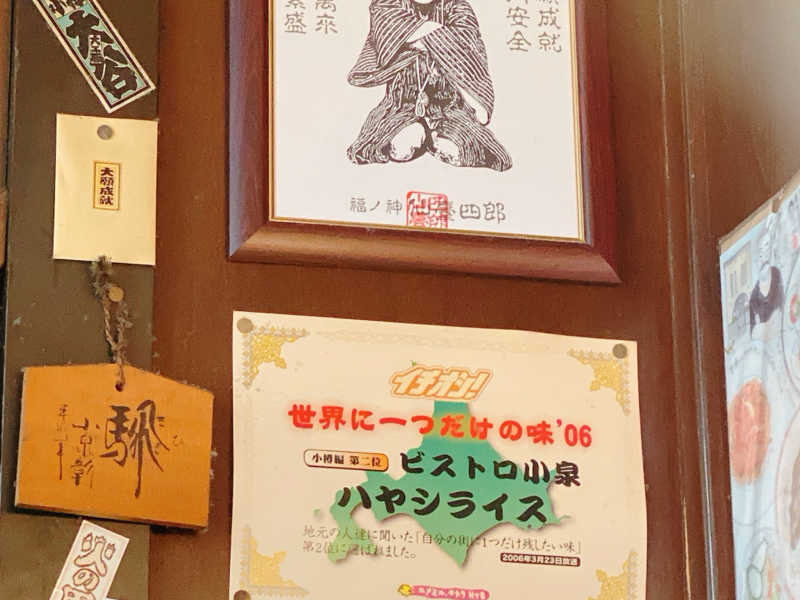 大願成就
萬來
繁盛
成就
安全
福ノ神 仙臺四郎
イチオシ!
世界に一つだけの味'06
小樽編 第二位
ビストロ小泉
ハヤシライス
地元の人達に聞いた「自分の街に1つだけ残したい味」
第2位に選ばれました。
2006年3月23日放送